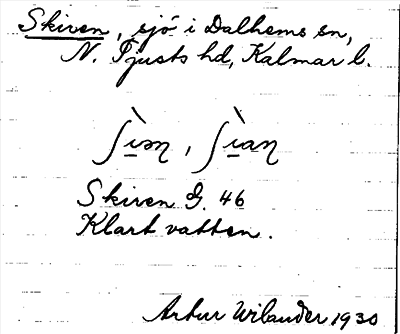 Skiren, sjö i Dalhems sn,
N. Tjusts hd, Kalmar l.
ʃìən, ʃìan
Skiren G. 46
Klart vatten.
Artur Wilander 1930